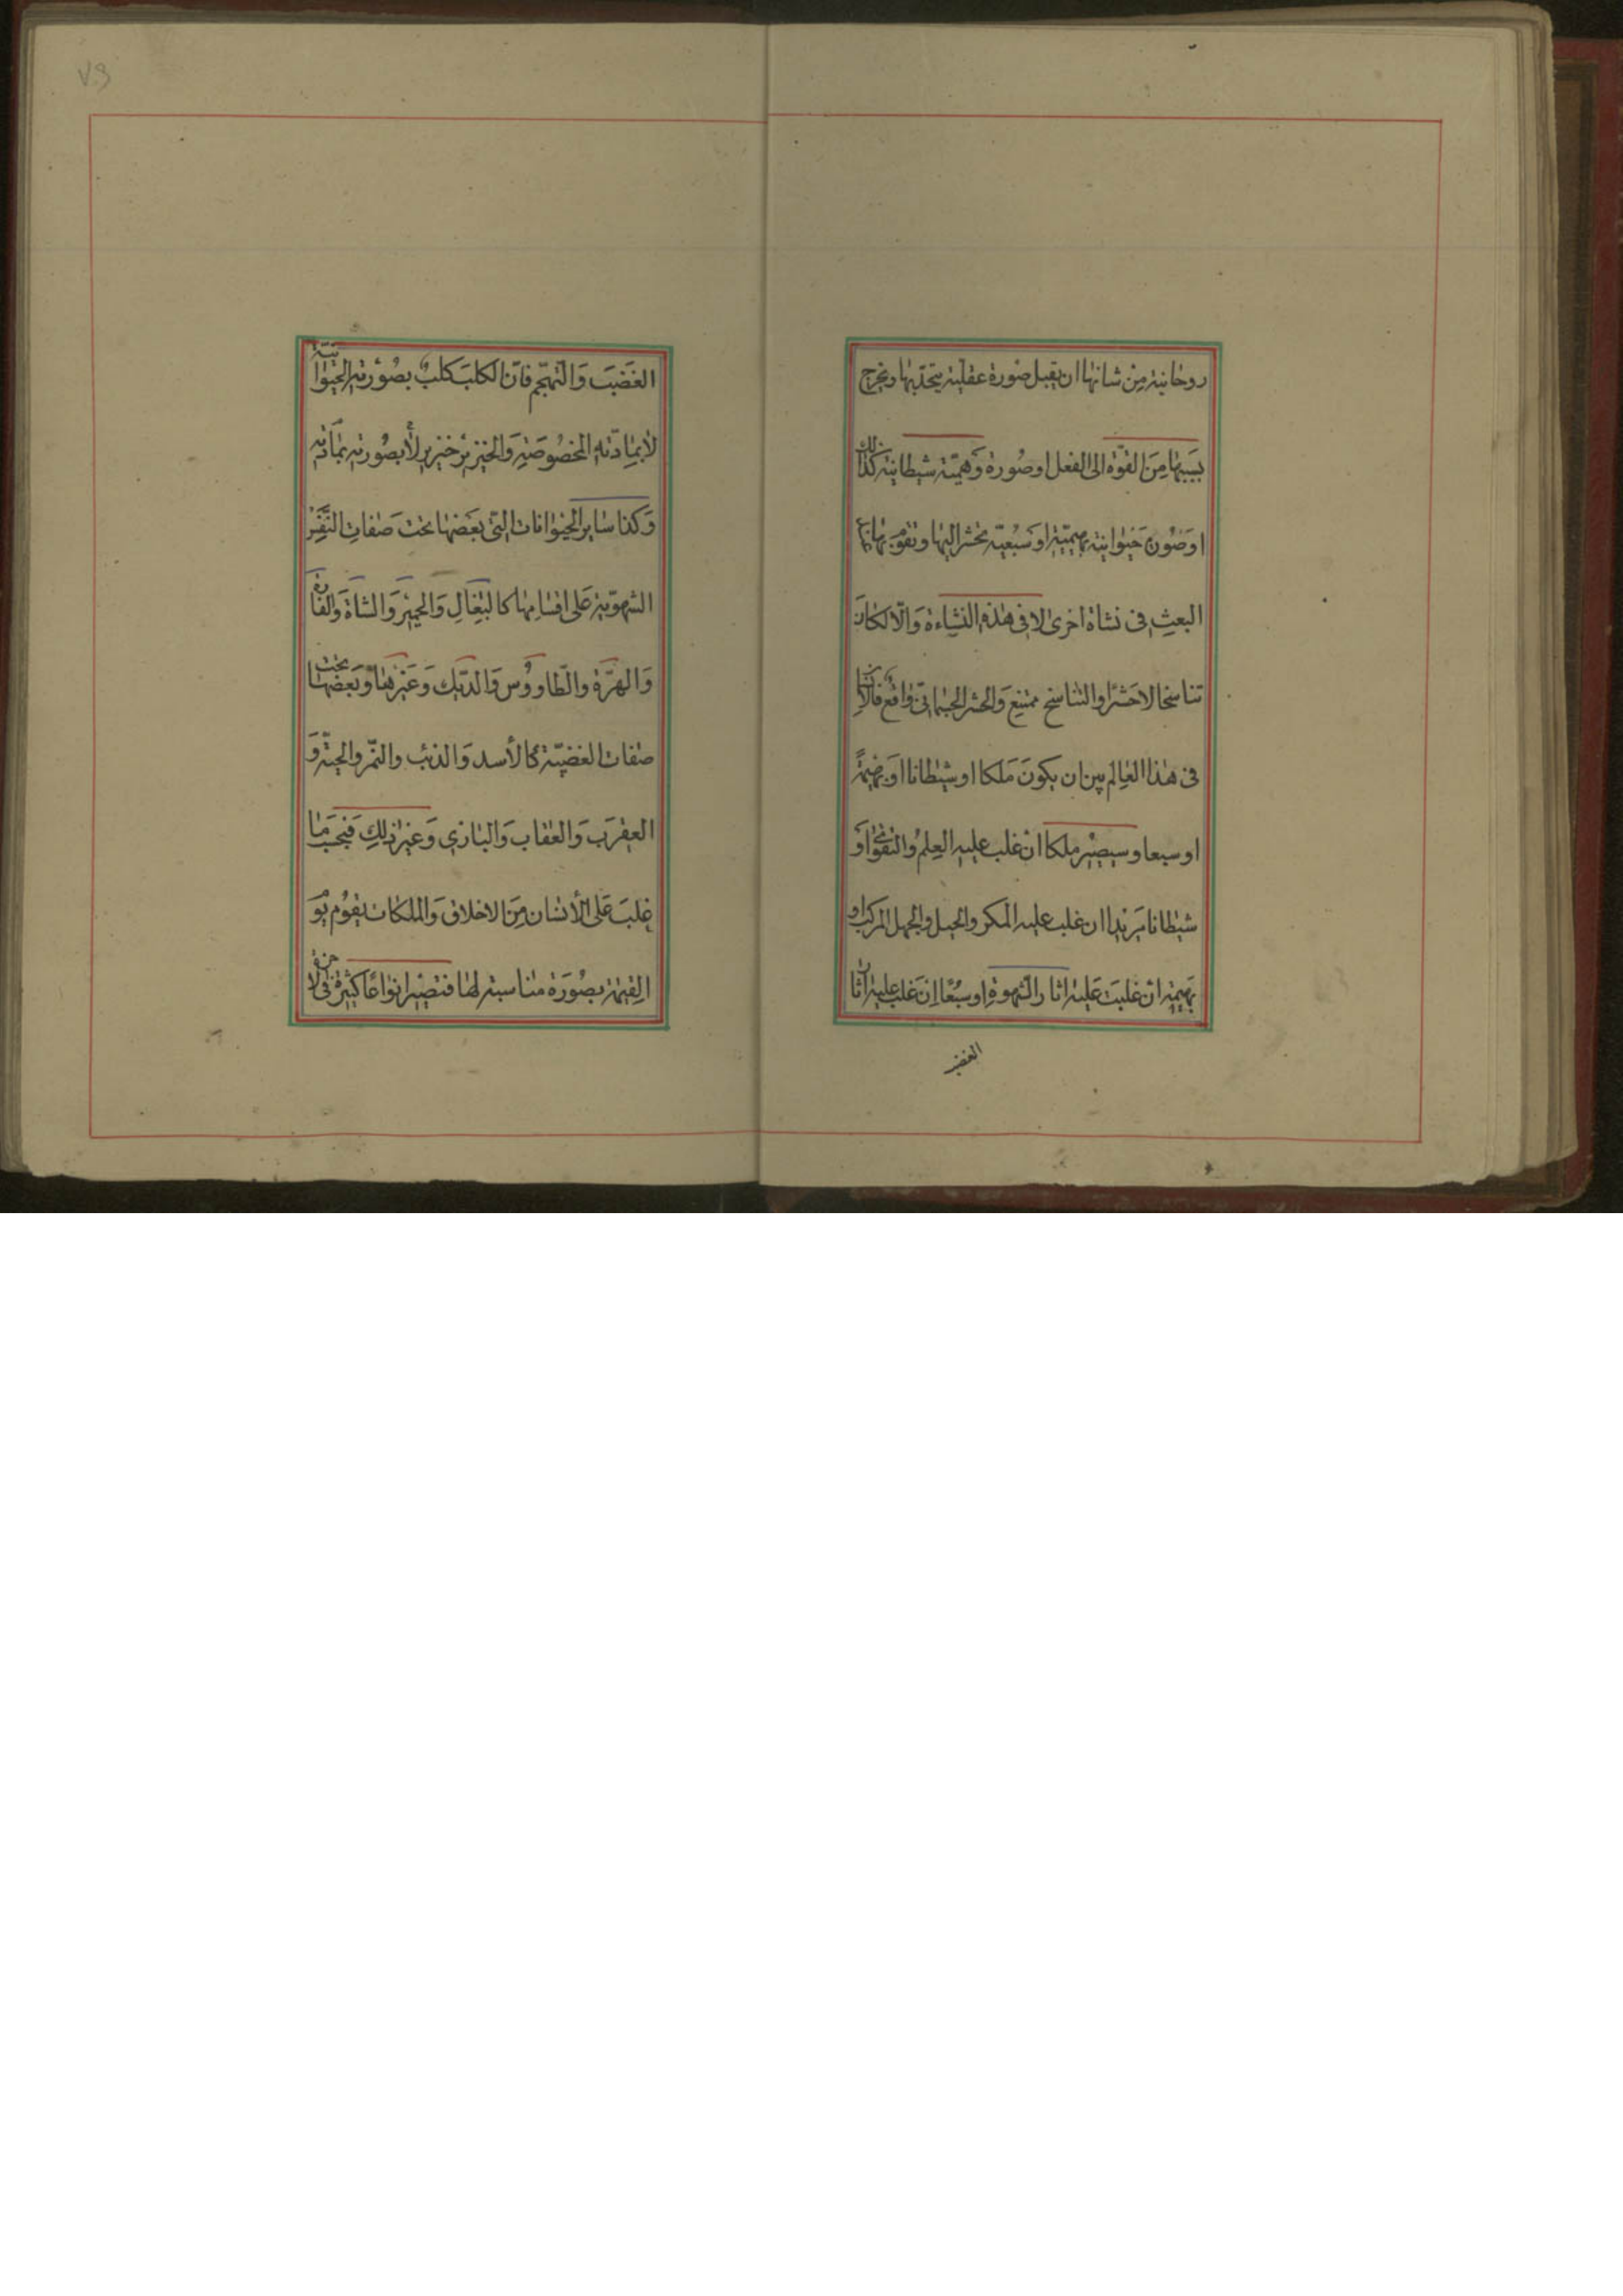 روحانية من شانها ان يقبل صورة عقلية يتحد بها ويخرج
بسببها من القوة الى الفعل او صورة وهمية شيطانية كذلك
او صورة حيوانية بهيمية او سبعية تحشر اليها وتقوم بها في
البعث فى نشاة اخرى لا فى هذه النشاءة والا لكان
تناسخا لا حشرا والتناسخ ممتنع والحشر الجسمانى واقع فالانسان
فى هذا العالم بين ان يكون ملكا او شيطانا او بهيمة
او سبعا وسيصير ملكا ان غلب عليه العلم والتقوى او
شيطانا مريدا ان غلب عليه المكر والحيل والجهل المركب او
بهيمة ان غلبت عليه اثار الشهوة او سبعا ان غلب عليه اثار
الغضب
٧٩
الغضب والتهجم فان الكلب كلب بصورته الحيوانية
لا بمادته المخصوصة والخنزير خنزير لابصورته بمادته
وكذا ساير الحيوانات التى بعضها تحت صفات النفس
الشهوية على اقسامها كالبغال والحمير والشاة والفارة
والهرة والطاووس والديك وغيرها وبعضها تحت
صفات الغضبية كالأسد والذئب والنمر والحية و
العقرب والعقاب والبازي وغير ذلك فبحسب ما
غلب على الأنسان من الاخلاق والملكات يقوم يوم
القيمة بصورة مناسبة لها فتصير انواعا كثيرة فى الاخرة